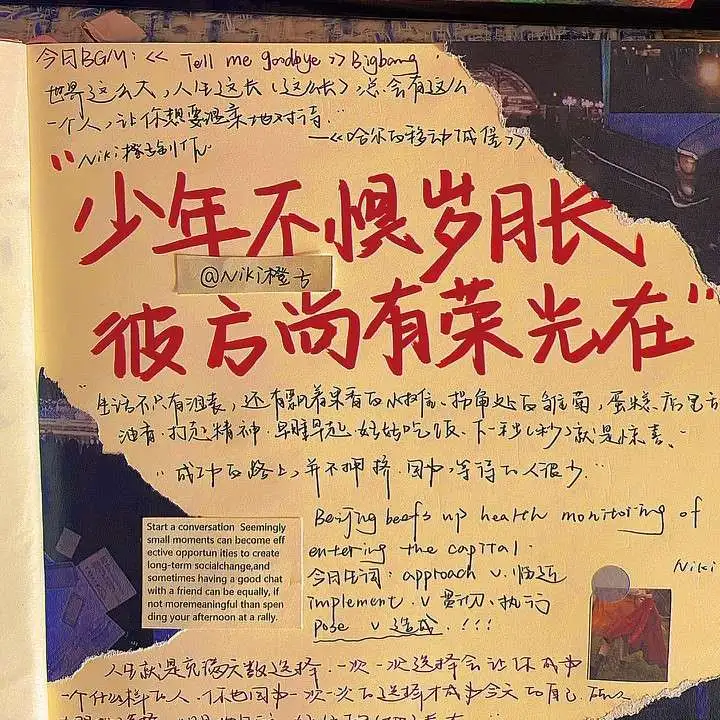 今日BGM:<< Tell me goodbye >> Bigbang
世界这么大,人生这长(这么长),总会有这么
一个人,让你想要温柔地对待.
—<<哈尔的移动城堡>>
Niki橙古制作
"少年不惧岁月长
@Niki橙古
彼方尚有荣光在"
"生活不只有沮丧,还有飘着果香的小
拐角处的雏菊,蛋糕店里的
油.打起精神.早睡早起.好好吃饭.下一秒(秒)就是惊喜.
"成功的路上,并不拥挤.因为,等待的人很少."
Beijing beefs up health monitoring of
entering the capital.
今日生词: approach v. 临近
implement. v 贯彻、执行
pose v 造成.!!!
Niki
Start a conversation Seemingly
small moments can become eff
ective opportun ities to create
long-term socialchange,and
sometimes having a good chat
with a friend can be equally, if
not moremeaningful than spen
ding your afternoon at a rally.
人生就是无穷次数选择.一次一次选择会让你成为
一个什么样的人.你也因为一次一次的选择才成为今天的自己.